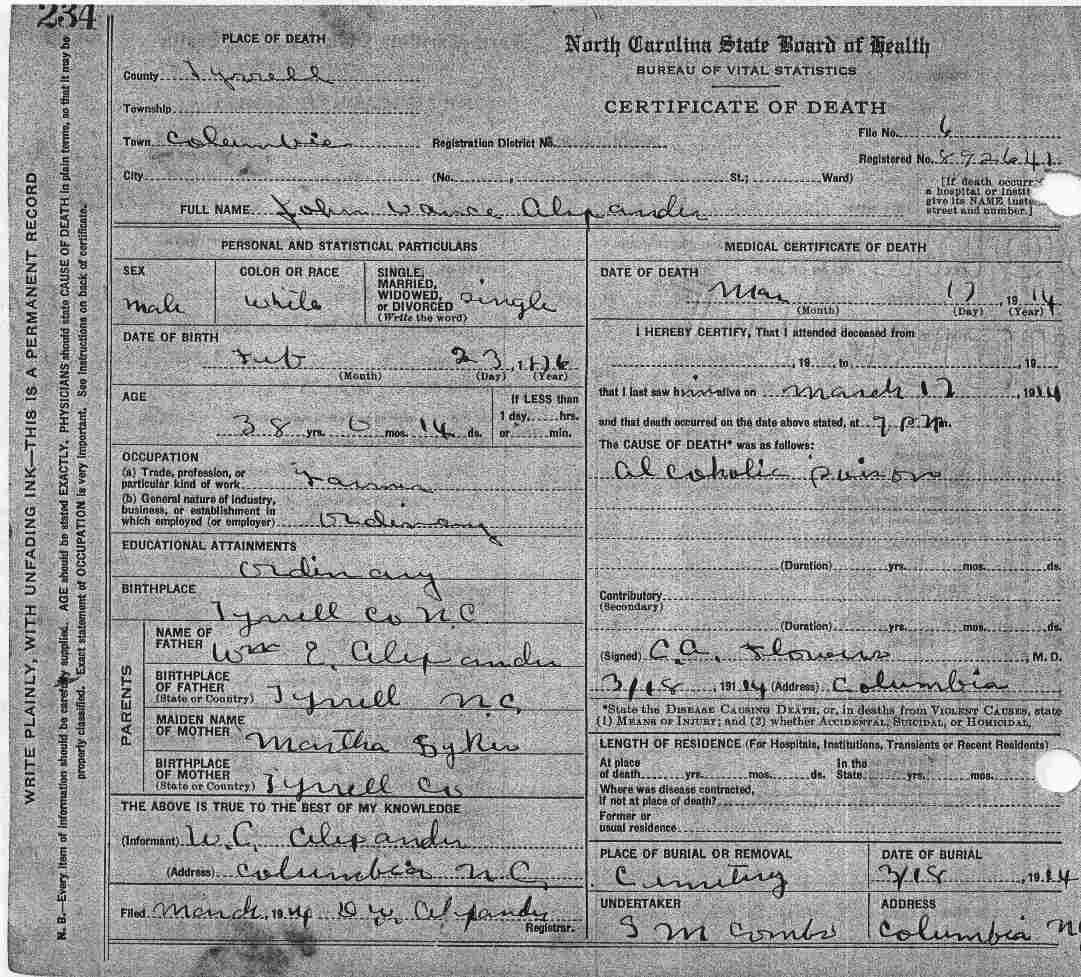 234
WRITE PLAINLY, WITH UNFADING INK—THIS IS A PERMANENT RECORD
N. B.—Every item of information should be carefully supplied. AGE should be stated EXACTLY. PHYSICIANS should state CAUSE OF DEATH in plain terms, so that it may be
properly classified. Exact statement of OCCUPATION is very important. See instructions on back of certificate.
PLACE OF DEATH
County Tyrrell
Township
Town Columbia
City
North Carolina State Board of Health
BUREAU OF VITAL STATISTICS
CERTIFICATE OF DEATH
Registration District No.
File No. 6
Registered No. 892641
(No. , St.; Ward)
[If death occurr
a hospital or Instit
give its NAME inste
street and number.]
FULL NAME John Vance Alexander
PERSONAL AND STATISTICAL PARTICULARS
SEX
male
COLOR OR RACE
White
SINGLE,
MARRIED,
WIDOWED,
or DIVORCED
(Write the word)
single
DATE OF BIRTH
Feb 23, 1876
(Month) (Day) (Year)
AGE
38 yrs. 0 mos. 14 ds.
If LESS than
1 day, hrs.
or min.
OCCUPATION
(a) Trade, profession, or
particular kind of work Farmer
(b) General nature of industry,
business, or establishment in
which employed (or employer) Ordinary
EDUCATIONAL ATTAINMENTS
ordinary
BIRTHPLACE
Tyrrell Co N.C
PARENTS
NAME OF
FATHER Wm E. Alexander
BIRTHPLACE
OF FATHER
(State or Country) Tyrrell N.C.
MAIDEN NAME
OF MOTHER Martha Sykes
BIRTHPLACE
OF MOTHER
(State or Country) Tyrrell Co
THE ABOVE IS TRUE TO THE BEST OF MY KNOWLEDGE
(Informant) W.C. Alexander
(Address) Columbia N.C.
Filed March, 1914 Alexander
Registrar.
MEDICAL CERTIFICATE OF DEATH
DATE OF DEATH
Mar 17, 1914
(Month) (Day) (Year)
I HEREBY CERTIFY, That I attended deceased from
, 19 , to , 19
that I last saw him alive on March 17, 1914
and that death occurred on the date above stated, at 7 P.m.
The CAUSE OF DEATH* was as follows:
Alcoholic poison
(Duration) yrs. mos. ds.
Contributory
(Secondary)
(Duration) yrs. mos. ds.
(Signed) C.A. Flowers, M. D.
3/18, 1914 (Address) Columbia
*State the DISEASE CAUSING DEATH, or, in deaths from VIOLENT CAUSES, state
(1) MEANS OF INJURY; and (2) whether ACCIDENTAL, SUICIDAL, or HOMICIDAL.
LENGTH OF RESIDENCE (For Hospitals, Institutions, Transients or Recent Residents)
At place
of death yrs. mos. ds.
In the
State yrs. mos.
Where was disease contracted,
if not at place of death?
Former or
usual residence
PLACE OF BURIAL OR REMOVAL
Cemetery
DATE OF BURIAL
3/18, 1914
UNDERTAKER
S M Combs
ADDRESS
Columbia NC